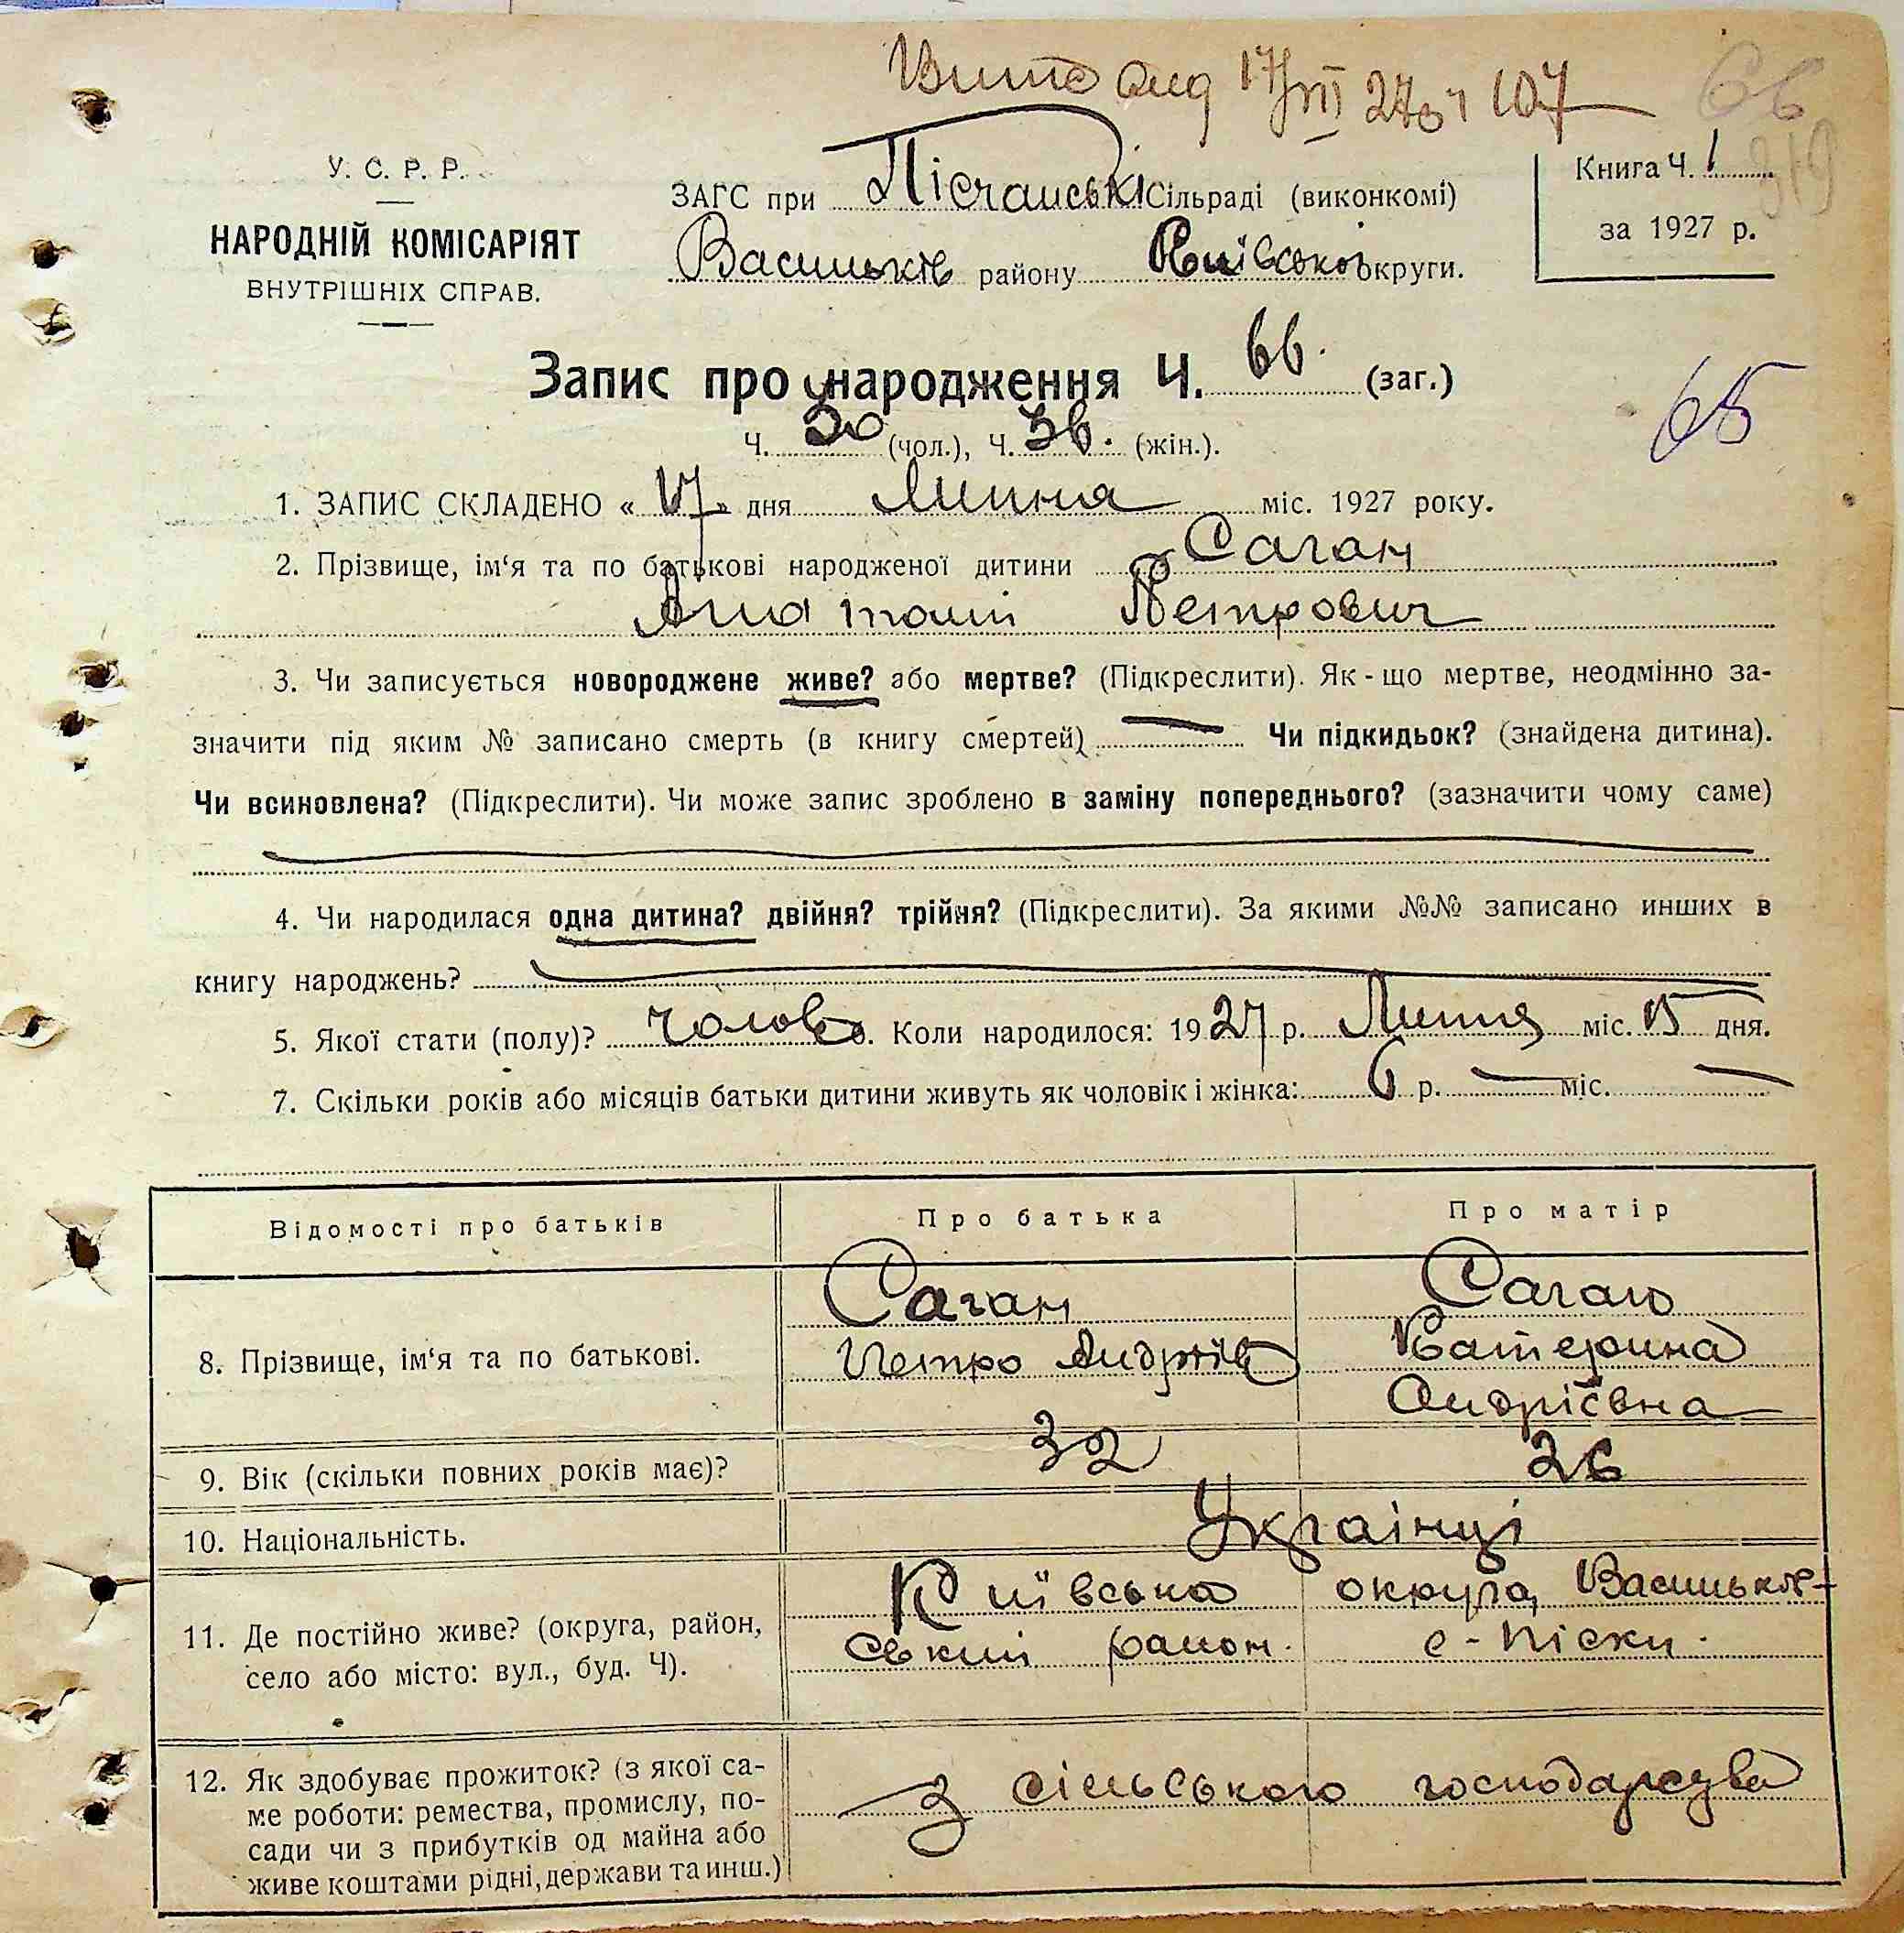 17/VII 27 р ч 107
66
319
У. С. Р. Р.
НАРОДНІЙ КОМІСАРІЯТ
ВНУТРІШНІХ СПРАВ.
ЗАГС при Пісчанські Сільраді (виконкомі)
Васильків району Київської округи.
Книга Ч. 1
за 1927 р.
Запис про народження Ч. 66. (заг.)
Ч. 30 (чол.), Ч. 36. (жін.).
65
1. ЗАПИС СКЛАДЕНО « 17 » дня Липня міс. 1927 року.
2. Прізвище, ім‘я та по батькові народженої дитини Саган
Анатолій Петрович
3. Чи записується новороджене живе? або мертве? (Підкреслити). Як-що мертве, неодмінно за-
значити під яким № записано смерть (в книгу смертей) Чи підкидьок? (знайдена дитина).
Чи всиновлена? (Підкреслити). Чи може запис зроблено в заміну попереднього? (зазначити чому саме)
4. Чи народилася одна дитина? двійня? трійня? (Підкреслити). За якими №№ записано инших в
книгу народжень?
5. Якої стати (полу)? чолов. Коли народилося: 1927 р. Липня міс. 15 дня.
7. Скільки років або місяців батьки дитини живуть як чоловік і жінка: 6 р. — міс. —
Відомості про батьків Про батька Про матір
8. Прізвище, ім‘я та по батькові.
Саган
Петро Андріїв
Саган
Катерина
Андрієвна
9. Вік (скільки повних років має)? 32 26
10. Національність. Українці
11. Де постійно живе? (округа, район,
село або місто: вул., буд. Ч).
Київська округа, Васильків-
ський район. с-Піски.
12. Як здобуває прожиток? (з якої са-
ме роботи: ремества, промислу, по-
сади чи з прибутків од майна або
живе коштами рідні, держави та инш.)
З сільського господарства